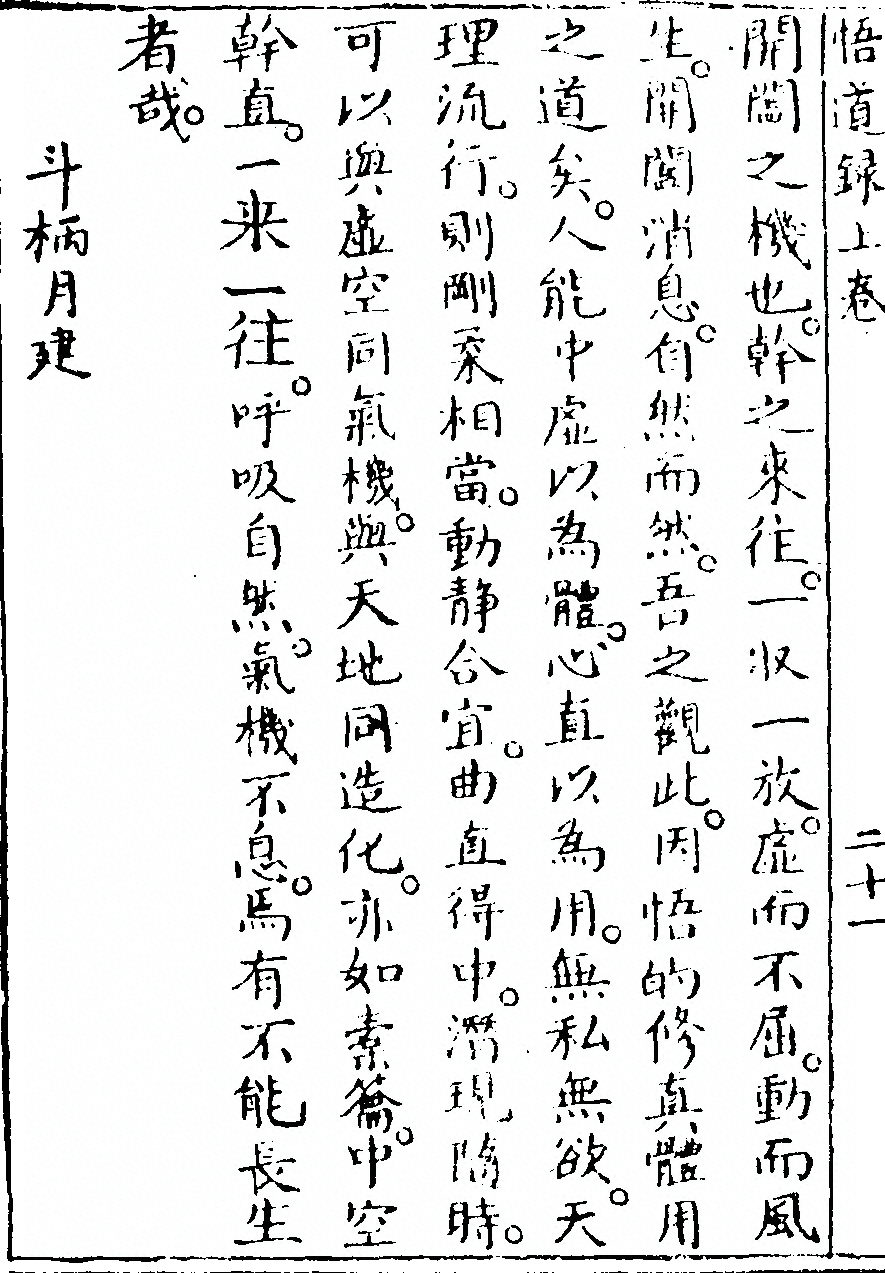 悟道録上卷 二十一
開闔之機也。幹之來往。一收一放。虛而不屈。動而風
生。開闔消息。自然而然。吾之觀此。因悟的修真體用
之道矣。人能中虛以為體。心直以為用。無私無欲。天
理流行。則剛柔相當。動靜合宜。曲直得中。潛現隨時。
可以與虛空同氣機。與天地同造化。亦如橐籥。中空
幹直。一来一往。呼吸自然。氣機不息。焉有不能長生
者哉。
斗柄月建